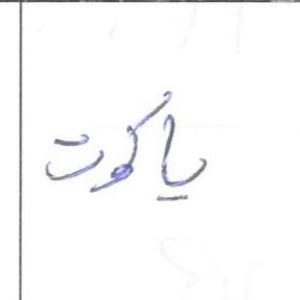 یاکوت